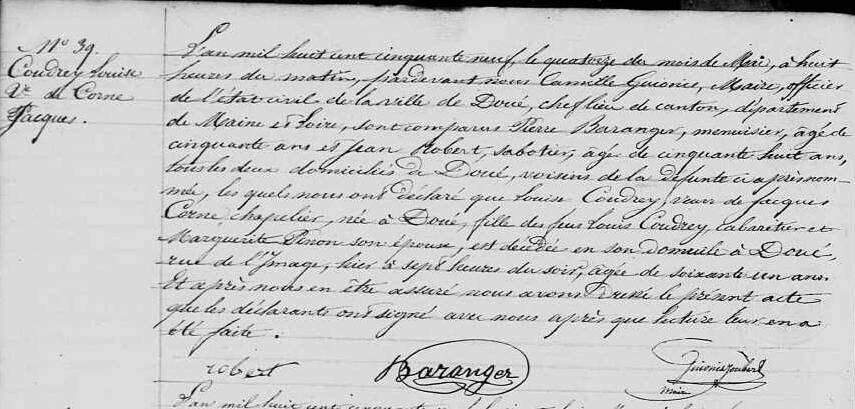 N° 39.
Coudrey Louise
Ve de Corne
Jacques.
L'an mil huit cent cinquante neuf, le quatorze du mois de Mai, à huit
heures du matin, pardevant nous Camille Guionis, Maire, officier
de l'état civil de la ville de Doué, chef lieu de canton, département
de Maine et Loire, sont comparus Pierre Baranger, menuisier, âgé de
cinquante ans et Jean Robert, sabotier, âgé de cinquante huit ans,
tous les deux domiciliés à Doué, voisins de la défunte ci après nom-
mée, les quels nous ont déclaré que Louise Coudrey, veuve de Jacques
Corne, chapelier, née à Doué, fille des feus Louis Coudrey, cabaretier et
Marguerite Pinon son épouse, est décédée en son domicile à Doué,
rue de l'Image, hier à sept heures du soir, âgée de soixante un ans.
Et après nous en être assuré nous avons dressé le présent acte
que les déclarants ont signé avec nous après que lecture leur en a
été faite.
robert Baranger Guionis joubert
maire
L'an mil huit cent cinquante